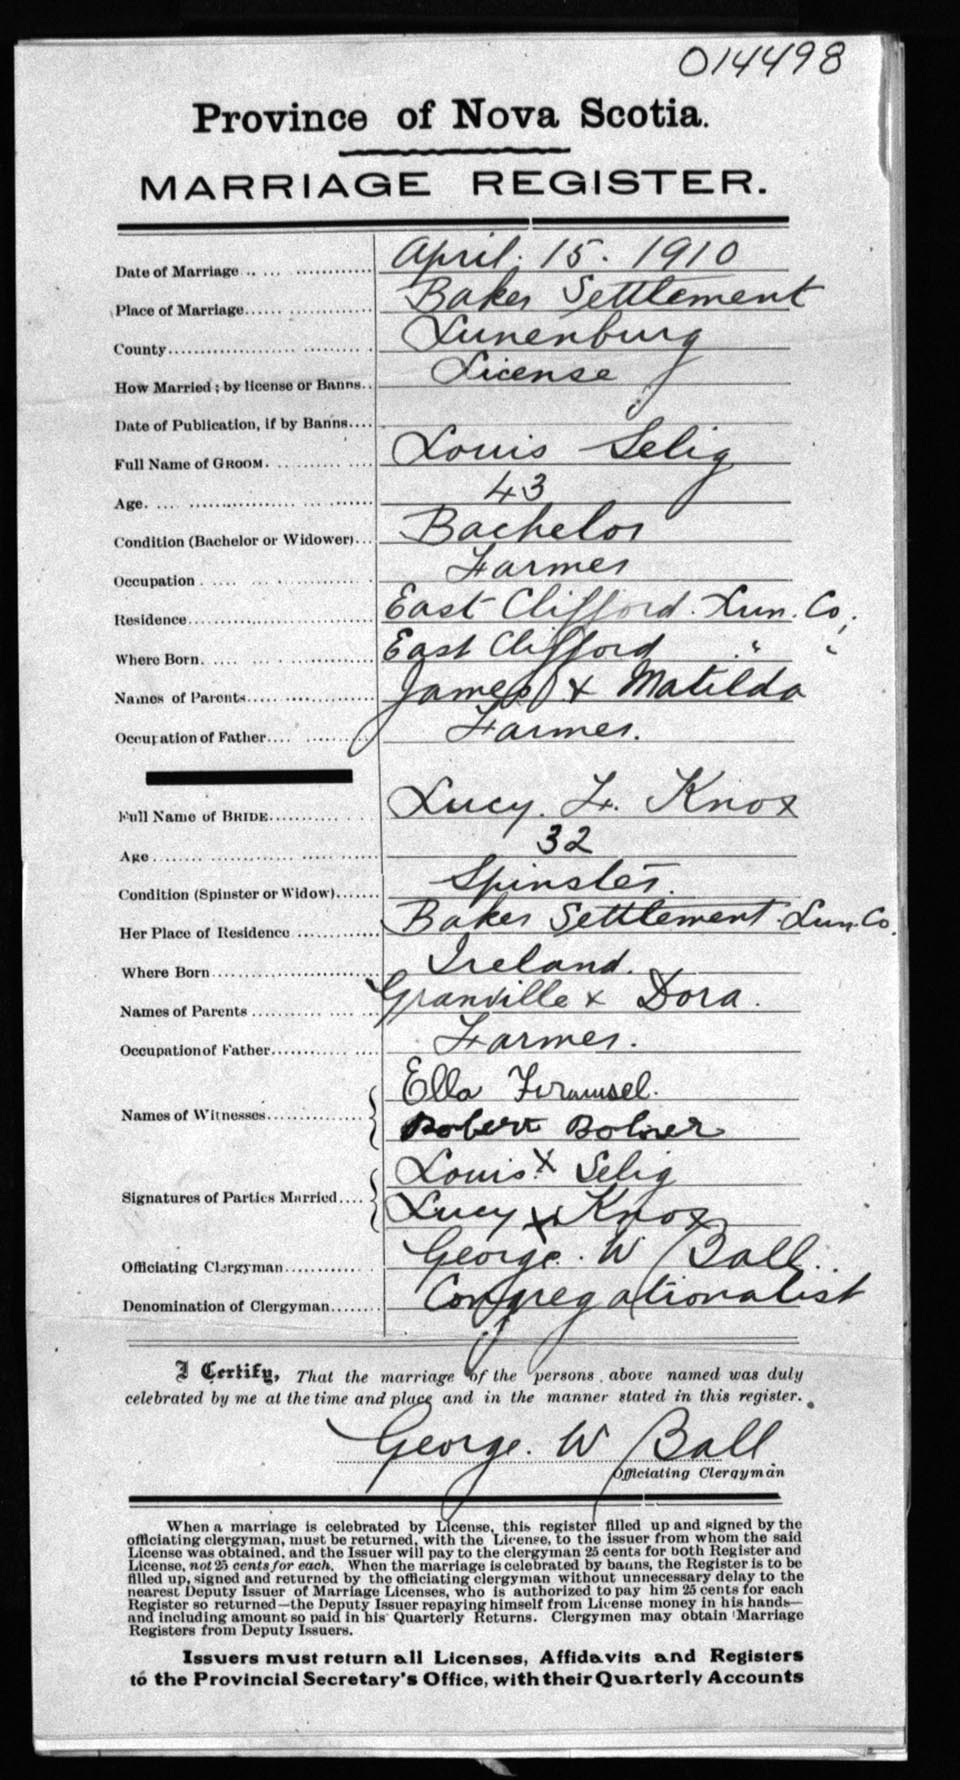 014498
Province of Nova Scotia.
MARRIAGE REGISTER.
Date of Marriage April. 15. 1910
Place of Marriage Baker Settlement
County Lunenburg
How Married; by license or Banns License
Date of Publication, if by Banns
Full Name of GROOM Louis Selig
Age 43
Condition (Bachelor or Widower) Bachelor
Occupation Farmer
Residence East Clifford. Lun. Co;
Where Born East Clifford " "
Names of Parents James & Matilda
Occupation of Father Farmer.
Full Name of BRIDE Lucy. F. Knox
Age 32
Condition (Spinster or Widow) Spinster.
Her Place of Residence Baker Settlement Lun. Co.
Where Born Ireland.
Names of Parents Granville & Dora.
Occupation of Father Farmer.
Names of Witnesses Ella
Robert
Signatures of Parties Married Louis X Selig
Lucy X Knox
Officiating Clergyman George. W Ball.
Denomination of Clergyman Congregationalist
I Certify, That the marriage of the persons above named was duly
celebrated by me at the time and place and in the manner stated in this register.
George. W Ball
Officiating Clergyman
When a marriage is celebrated by License, this register filled up and signed by the
officiating clergyman, must be returned, with the License, to the issuer from whom the said
License was obtained, and the Issuer will pay to the clergyman 25 cents for both Register and
License, not 25 cents for each. When the marriage is celebrated by banns, the Register is to be
filled up, signed and returned by the officiating clergyman without unnecessary delay to the
nearest Deputy Issuer of Marriage Licenses, who is authorized to pay him 25 cents for each
Register so returned—the Deputy Issuer repaying himself from License money in his hands—
and including amount so paid in his Quarterly Returns. Clergymen may obtain Marriage
Registers from Deputy Issuers.
Issuers must return all Licenses, Affidavits and Registers
to the Provincial Secretary's Office, with their Quarterly Accounts